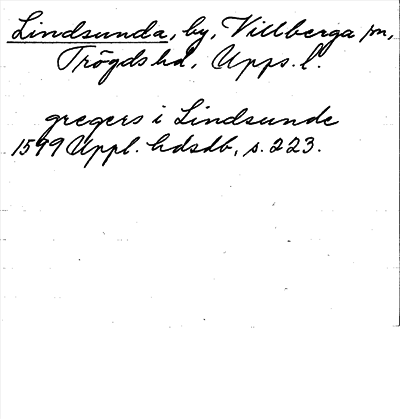 Lindsunda, by, Villberga sn,
Trögds hd, Upps. l.
gregers i Lindsunde
1599 Uppl. hdsdb, s. 223.